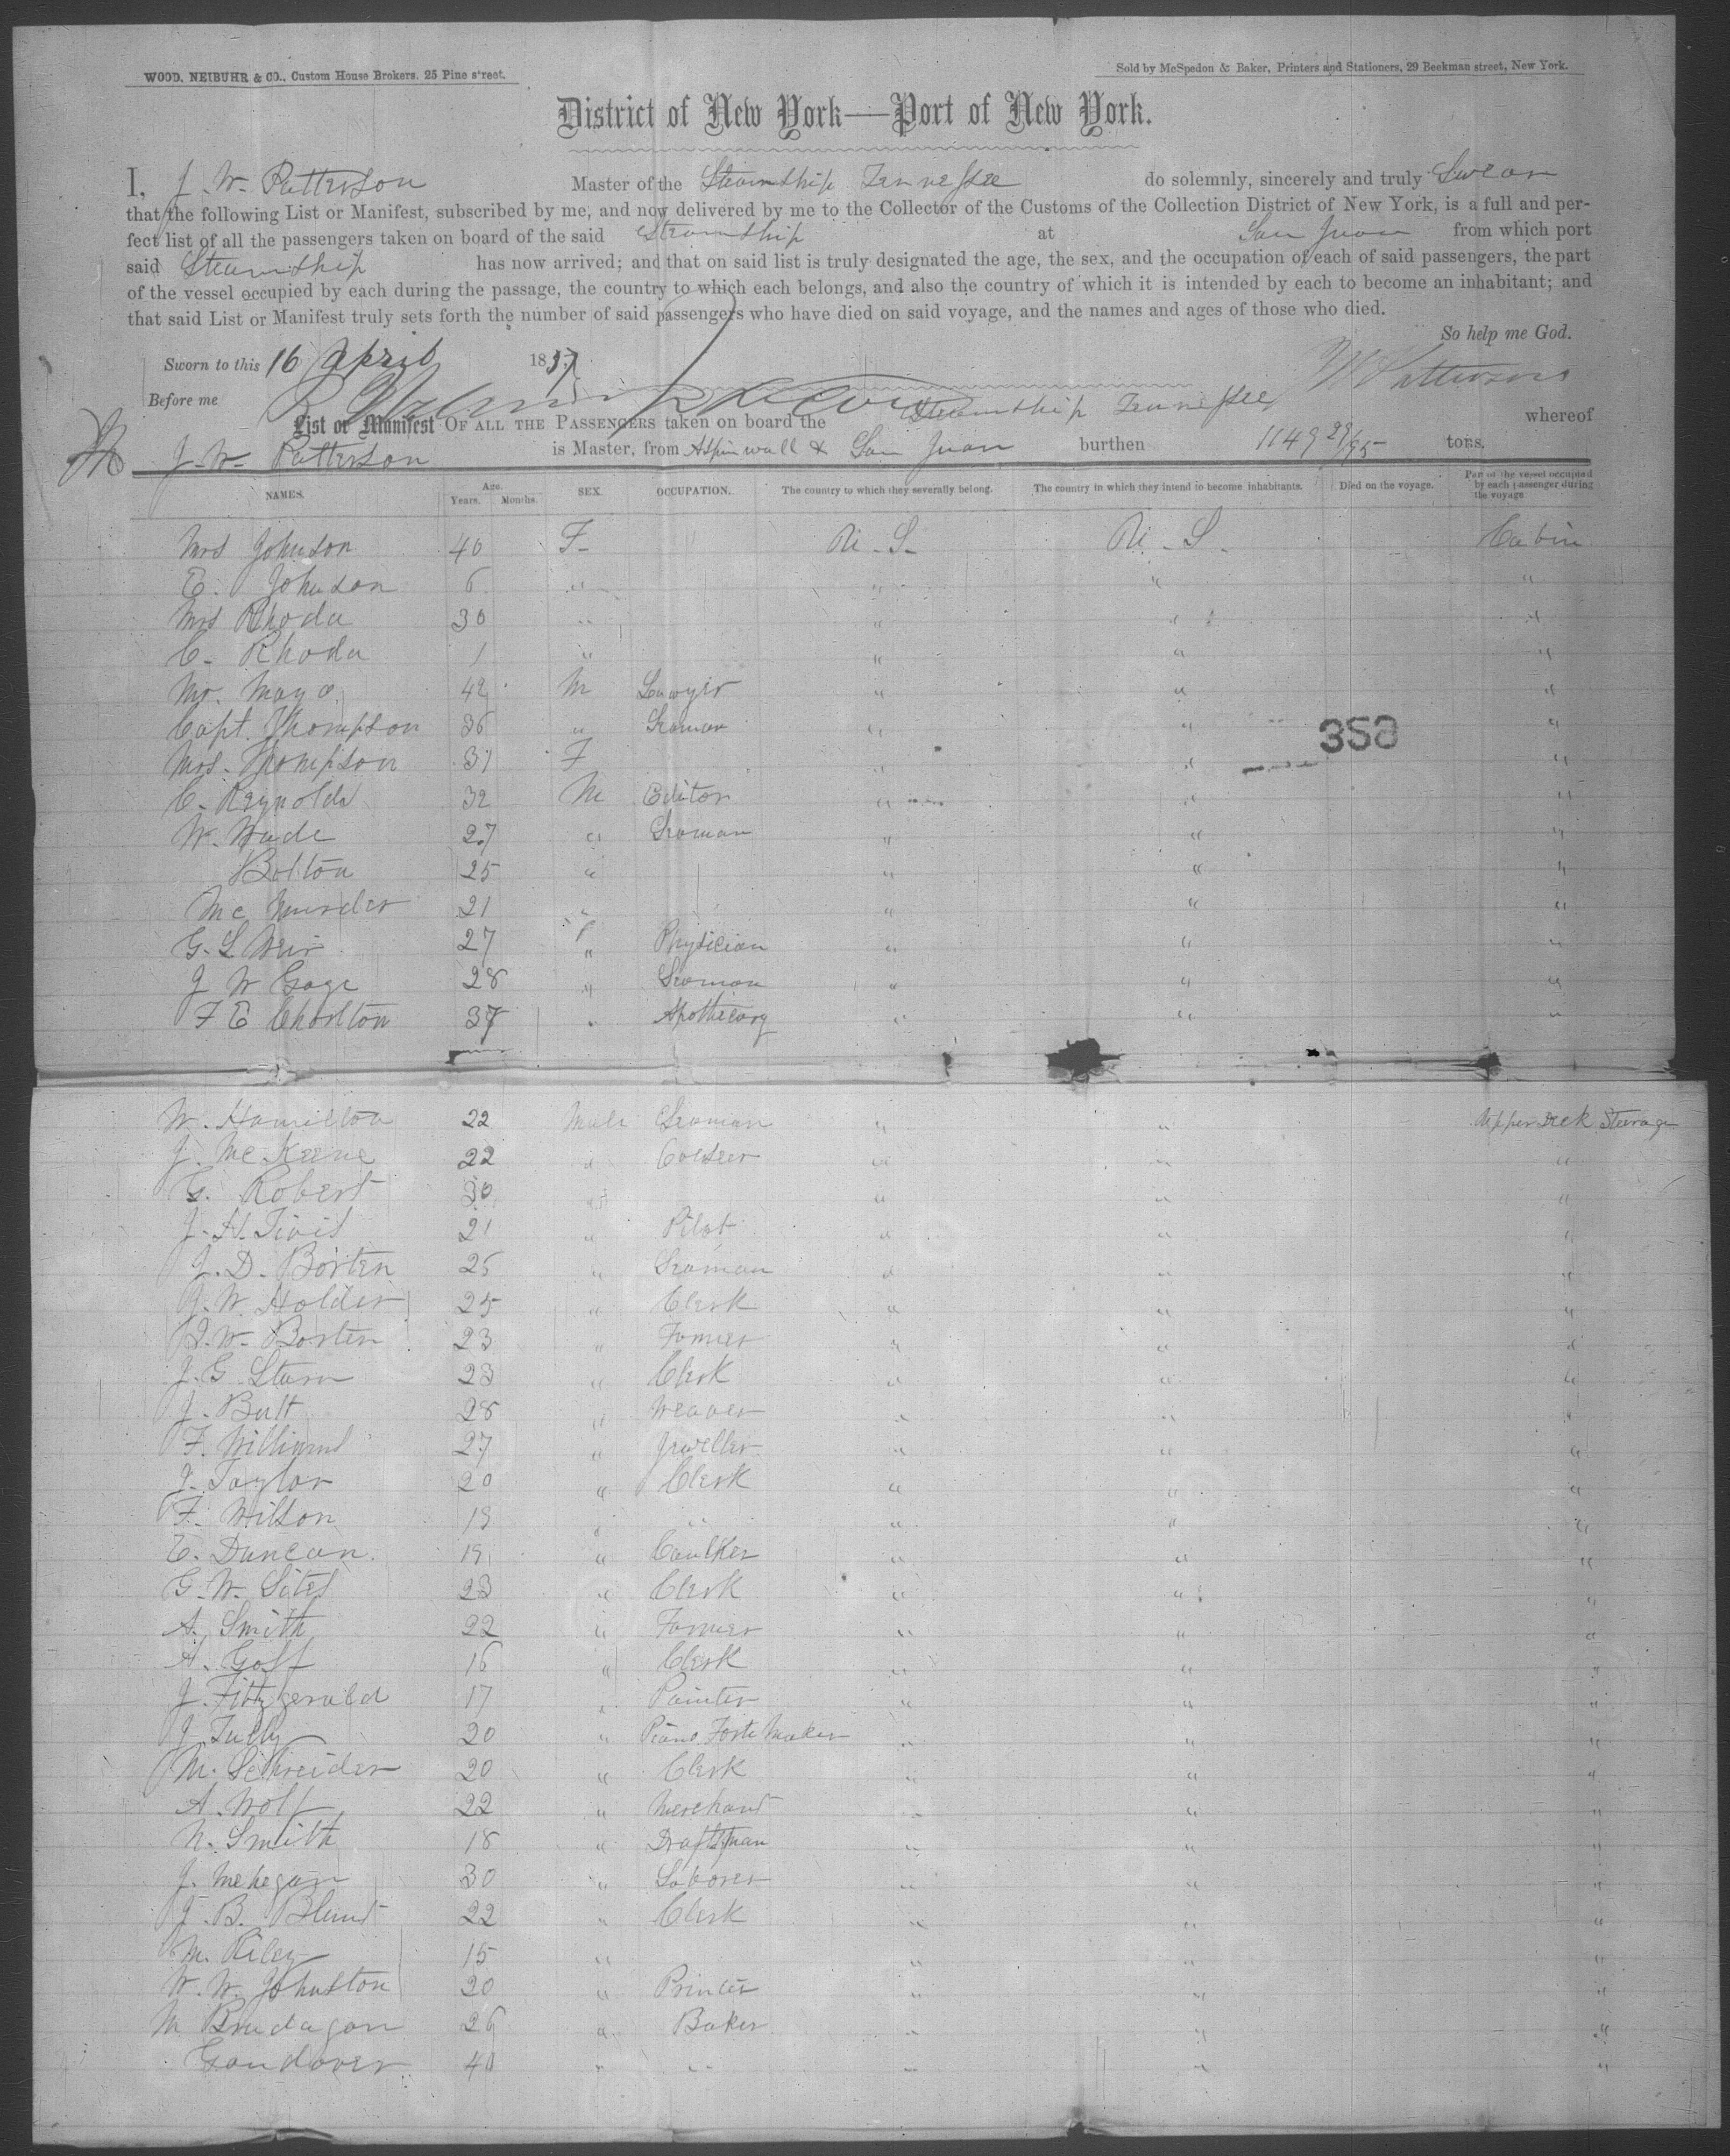 WOOD, NEIBUHR & CO., Custom House Brokers. 25 Pine street.
Sold by McSpedon & Baker, Printers and Stationers, 29 Beekman street, New York.
District of New York—Port of New York.
I, J. W. Patterson Master of the Steamship Tennessee do solemnly, sincerely and truly Swear
that the following List or Manifest, subscribed by me, and now delivered by me to the Collector of the Customs of the Collection District of New York, is a full and per-
fect list of all the passengers taken on board of the said Steamship at San Juan from which port
said Steamship has now arrived; and that on said list is truly designated the age, the sex, and the occupation of each of said passengers, the part
of the vessel occupied by each during the passage, the country to which each belongs, and also the country of which it is intended by each to become an inhabitant; and
that said List or Manifest truly sets forth the number of said passengers who have died on said voyage, and the names and ages of those who died.
So help me God.
Sworn to this 16 April 1857
Patterson
Before me
List or Manifest OF ALL THE PASSENGERS taken on board the Steamship Tennessee whereof
J. W. Patterson is Master, from Aspinwall & San Juan burthen 1149 29/95 tons.
NAMES. Age. Years. Months. SEX. OCCUPATION. The country to which they severally belong. The country in which they intend to become inhabitants. Died on the voyage. Part of the vessel occupied by each passenger during the voyage
Mrs Johnson 40 F- U-S- U-S- Cabin
E. Johnson 6 " " " "
Mrs Rhoda 30 " " " "
C. Rhoda 1 " " " "
Mr. Mayo 42 M Lawyer " " "
Capt. Thompson 36 " Seaman " " "
358
Mrs. Thompson 31 F " " "
C. Reynolds 32 M Editor " " "
W. Wade 27 " Seaman " " "
Bolton 25 " " " "
Mc 21 " " " "
G. L Weir 27 " Physician " " "
J W Gage 28 " Seaman " " "
F E Charlton 37 " Apothecary " " "
W. Hamilton 22 Male Seaman " " Upper Deck Steerage
J. McKeene 22 " " " "
G. Robert 30 " " " "
J. H. Tivis 21 " Pilot " " "
J. D. Borten 25 " Seaman " " "
J. W. Holder 25 " Clerk " " "
J. W. Borten 23 " Farmer " " "
J. G. Starn 23 " Clerk " " "
J. Butt 28 " Weaver " " "
F. Williams 27 " Jeweller " " "
J. Taylor 20 " Clerk " " "
F. Wilson 19 " " " " "
E. Duncan 19 " Caulker " " "
G. W. Sites 23 " Clerk " " "
A. Smith 22 " Farmer " " "
A. Goff 16 " Clerk " " "
J. Fitzgerald 17 " Painter " " "
J Tully 20 " Piano Forte Maker " " "
M. Schreider 20 " Clerk " " "
A. Wolf 22 " Merchant " " "
N. Smith 18 " Draftsman " " "
J. Mehegan 30 " Laborer " " "
J. B. Blunt 22 " Clerk " " "
M. Riley 15 " " " "
W. W. Johnston 20 " Printer " " "
M Brudagan 26 " Baker " " "
Gandover 40 " " " " "